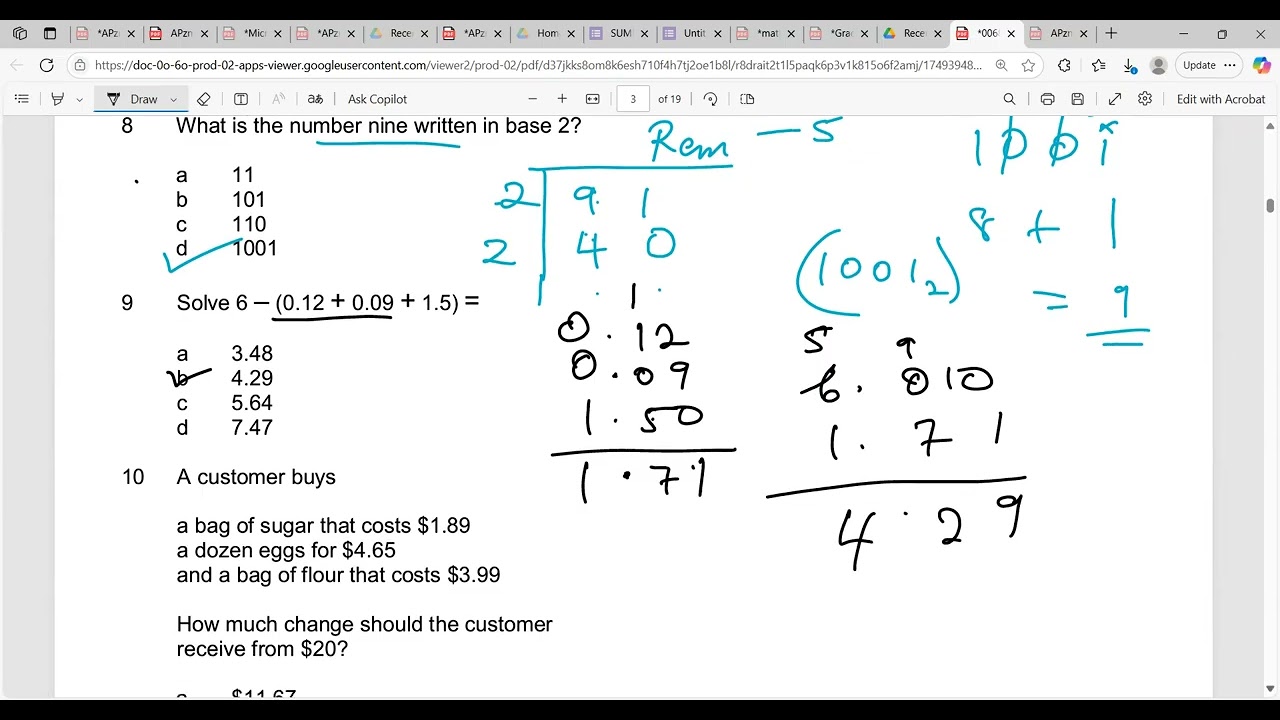 *APz
APzn
*Micr
*APz
Rece
*APz
Hom
SUM
Untit
*mat
*Gra
Rece
*006
APzn
https://doc-0o-6o-prod-02-apps-viewer.googleusercontent.com/viewer2/prod-02/pdf/d37jkks8om8k6esh710f4h7tj2oe1b8l/r8drait2t1l5paqk6p3v1k815o6f2amj/17493948...
Update
Draw
Ask Copilot
3 of 19
Edit with Acrobat
8 What is the number nine written in base 2?
a 11
b 101
c 110
d 1001
Rem — 5
2 9 1
2 4 0
1 0 0 1
8 + 1
(1001₂) = 9
9 Solve 6 – (0.12 + 0.09 + 1.5) =
a 3.48
b 4.29
c 5.64
d 7.47
1
0.12
0.09
1.50
1.71
5 9
6.010
1.71
4.29
10 A customer buys
a bag of sugar that costs $1.89
a dozen eggs for $4.65
and a bag of flour that costs $3.99
How much change should the customer
receive from $20?
a $11.67